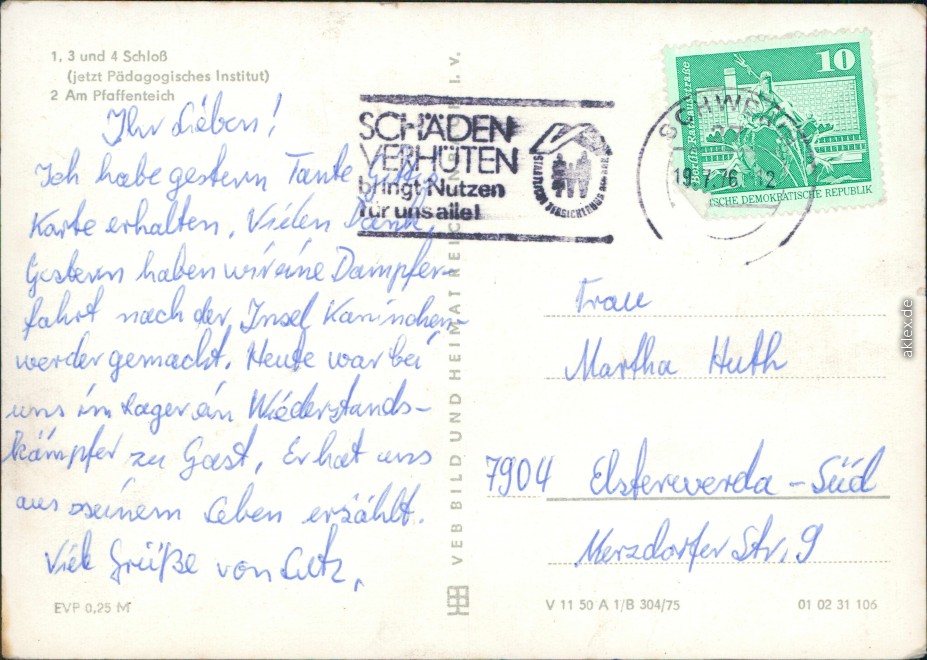 1, 3 und 4 Schloß
(jetzt Pädagogisches Institut)
2 Am Pfaffenteich
Ihr Lieben!
Ich habe gestern Tante
Karte erhalten. Vielen Dank,
Gestern haben wir eine Dampfer-
fahrt nach der Insel Kaninchen-
werder gemacht. Heute war bei
uns im Lager ein Wiederstands-
kämpfer zu Gast, Er hat uns
aus seinem Leben erzählt.
Viele Grüße von Lutz,
EVP 0,25 M
VEB BILD UND HEIMAT REICHENBACH I. V.
SCHÄDEN
VERHÜTEN
bringt Nutzen
für uns alle!
STAATLICHE VERSICHERUNG DER DDR
SCHWERIN
19.7.76 12
10
Berlin, Rathausstraße
DEUTSCHE DEMOKRATISCHE REPUBLIK
Frau
Martha Huth
7904 Elsterwerda - Süd
Merzdorfer Str. 9
V 11 50 A 1/B 304/75
01 02 31 106
aklex.de